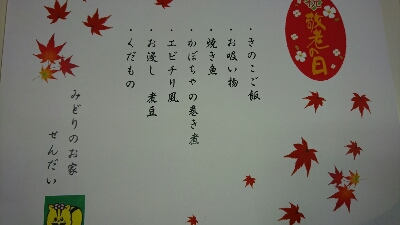 祝
敬老の日
・きのこご飯
・お吸い物
・焼き魚
・かぼちゃの巻き煮
・エビチリ風
・お浸し 煮豆
・くだもの
みどりのお家
せんだい